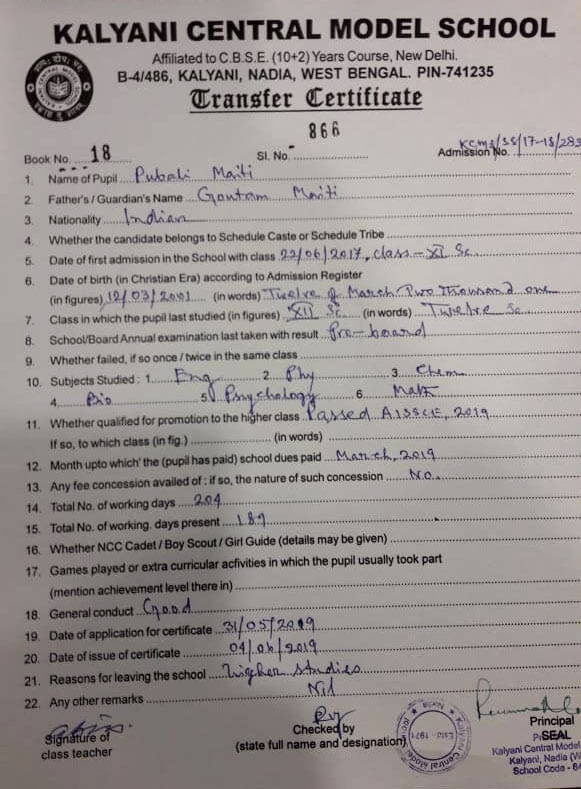 KALYANI CENTRAL MODEL SCHOOL
Affiliated to C.B.S.E. (10+2) Years Course, New Delhi.
B-4/486, KALYANI, NADIA, WEST BENGAL. PIN-741235
Transfer Certificate
Book No. 18 Sl. No. 866 Admission No. KCMS/SS/17-18/283
1. Name of Pupil Pubali Maiti
2. Father's / Guardian's Name Goutam Maiti
3. Nationality Indian
4. Whether the candidate belongs to Schedule Caste or Schedule Tribe
5. Date of first admission in the School with class 22/06/2017, class - XI Sc.
6. Date of birth (in Christian Era) according to Admission Register
(in figures) 12/03/2001 (in words) Twelve of March Two Thousand one
7. Class in which the pupil last studied (in figures) XII Sc (in words) Twelve Sc.
8. School/Board Annual examination last taken with result Pre-board
9. Whether failed, if so once / twice in the same class
10. Subjects Studied : 1. Eng 2. Phy 3. Chem
4. Bio 5. Psychology 6. Math
11. Whether qualified for promotion to the higher class Passed AISSCE, 2019
If so, to which class (in fig.) (in words)
12. Month upto which' the (pupil has paid) school dues paid March, 2019
13. Any fee concession availed of : if so, the nature of such concession No.
14. Total No. of working days 204
15. Total No. of working. days present 189
16. Whether NCC Cadet / Boy Scout / Girl Guide (details may be given)
17. Games played or extra curricular activities in which the pupil usually took part
(mention achievement level there in)
18. General conduct Good
19. Date of application for certificate 31/05/2019
20. Date of issue of certificate 04/06/2019
21. Reasons for leaving the school Higher studies
22. Any other remarks Nil
Signature of
class teacher
Checked by
(state full name and designation)
Principal
SEAL
Kalyani Central Model
Kalyani, Nadia (W
School Code -